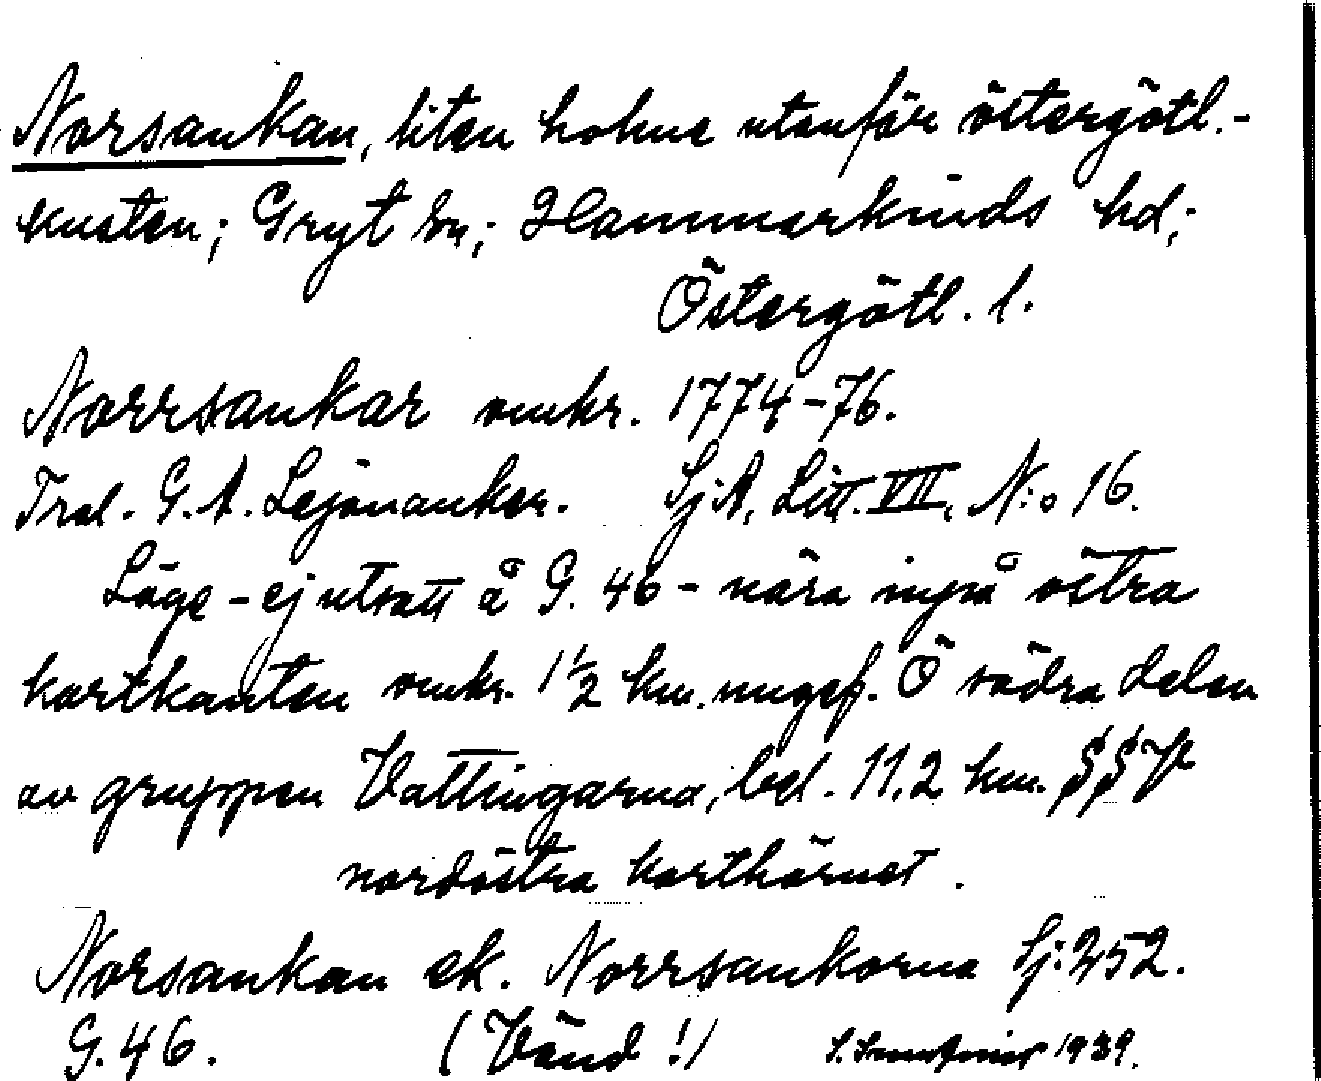 Norsankan, liten holme utanför östergötl.-
kusten; Gryt sn; Hammarkinds hd;
Östergötl. l.
Norrsankar omkr. 1774-76.
Trol. G. A. Lejonanker. Sj:A, Litt. VII, N:o 16.
Läge - ej utsatt å G. 46 - nära inpå östra
kartkanten omkr. 1 1/2 km. ungef. Ö södra delen
av gruppen Vattingarna, bel. 11,2 km. §§V
nordöstra karthörnet.
Norsankan ek. Norrsankorna Sj:252.
G. 46. (Vänd!) 1939.